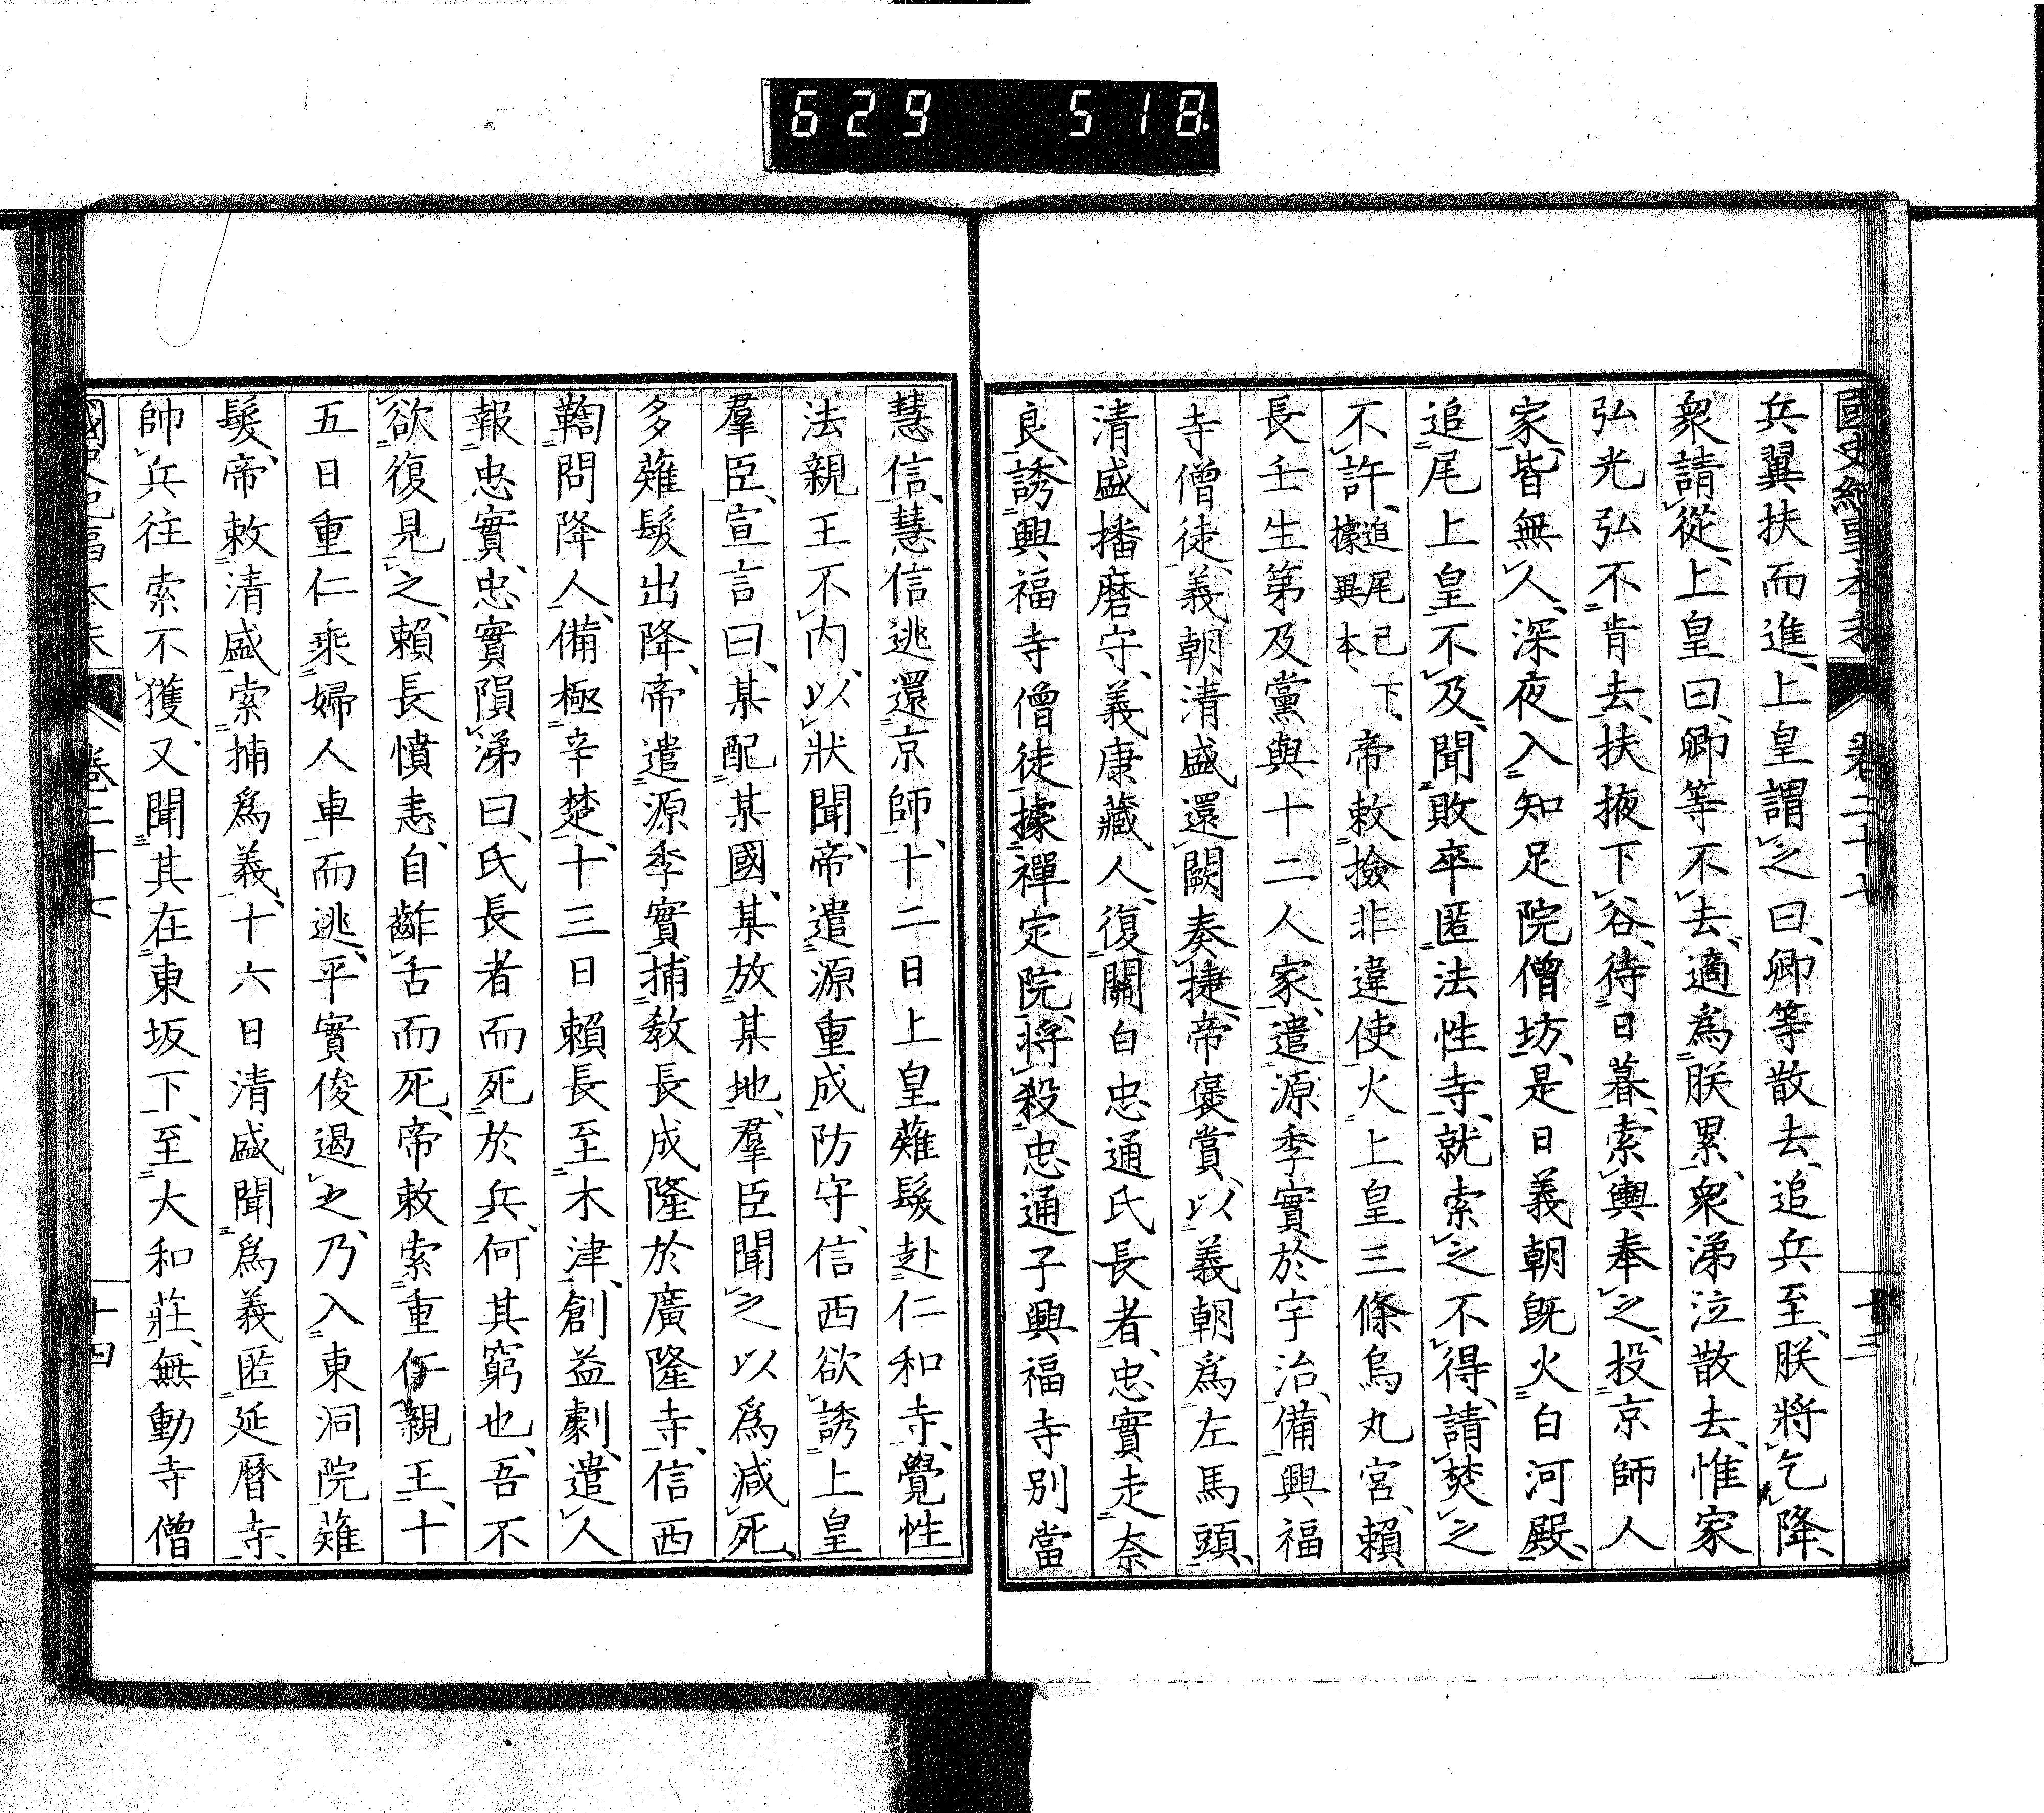 629 518
國史紀事本末 卷二十七 十三
兵翼扶而進、上皇謂之曰、卿等散去、追兵至、朕將乞降、
衆請從、上皇曰、卿等不去、適爲朕累、衆涕泣散去、惟家
弘光弘不肯去、扶掖下谷、待日暮、索輿奉之、投京師人
家、皆無人、深夜入知足院僧坊、是日義朝既火白河殿、
追尾上皇不及、聞敗卒匿法性寺、就索之不得、請焚之
不許、追尾已下、據異本、帝敕撿非違使火上皇三條烏丸宮、賴
長壬生第及黨與十二人家、遣源季實於宇治、備興福
寺僧徒、義朝清盛還闕奏捷、帝褒賞、以義朝爲左馬頭、
清盛播磨守、義康藏人、復關白忠通氏長者、忠實走奈
良、誘興福寺僧徒據禪定院、將殺忠通子興福寺別當
慧信、慧信逃還京師、十二日上皇薙髮赴仁和寺、覺性
法親王不内、以狀聞、帝遣源重成防守、信西欲誘上皇
羣臣、宣言曰、某配某國、某放某地、羣臣聞之以爲減死、
多薙髮出降、帝遣源季實捕教長成隆於廣隆寺、信西
鞫問降人、備極辛楚、十三日賴長至木津、創益劇、遣人
報忠實、忠實隕涕曰、氏長者而死於兵、何其窮也、吾不
欲復見之、賴長憤恚、自齚舌而死、帝敕索重仁親王、十
五日重仁乘婦人車而逃、平實俊遏之、乃入東洞院薙
髮、帝敕清盛索捕爲義、十六日清盛聞爲義匿延曆寺、
帥兵往索不獲、又聞其在東坂下、至大和莊、無動寺僧
國史紀事本末 卷二十七 十四